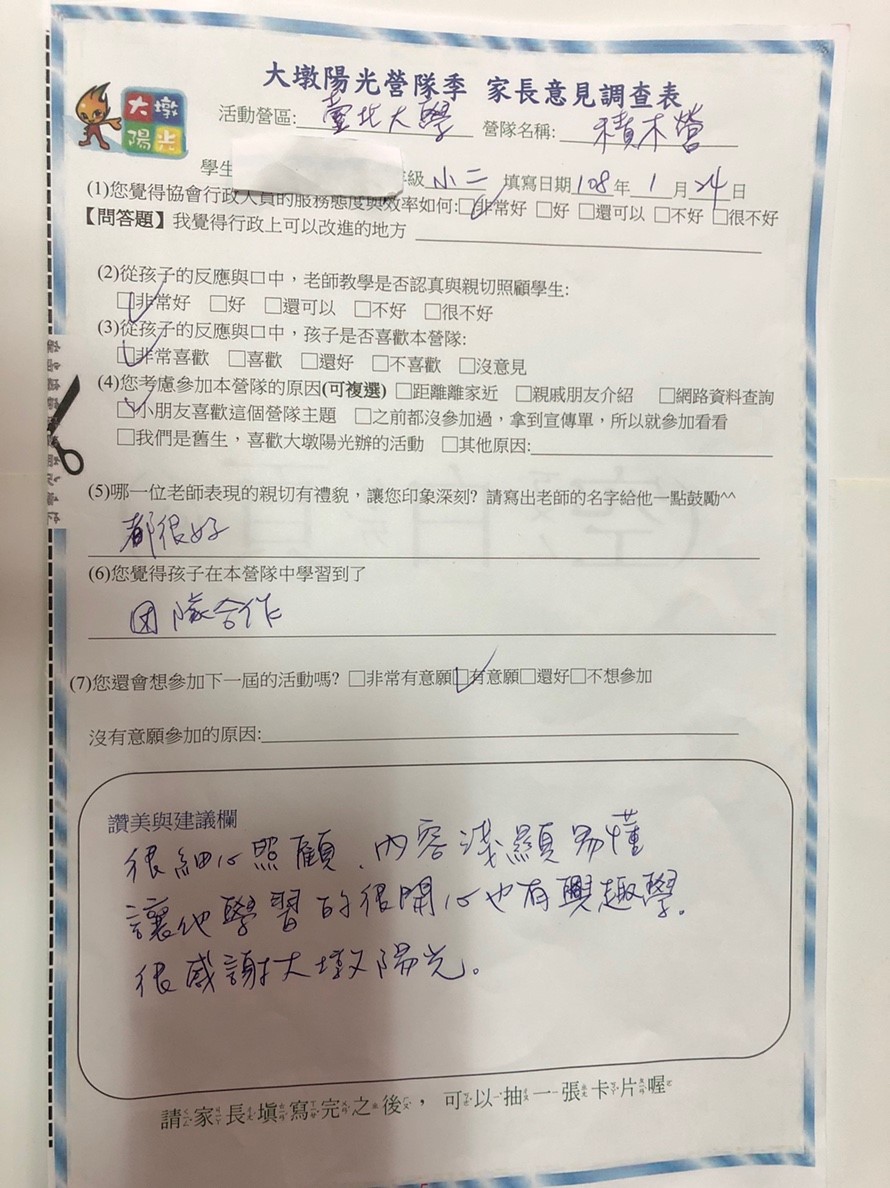 大墩陽光營隊季 家長意見調查表
大墩
陽光
活動營區:臺北大學 營隊名稱:積木營
學生 年級小二 填寫日期108年1月24日
(1)您覺得協會行政人員的服務態度與效率如何:☑非常好 □好 □還可以 □不好 □很不好
【問答題】我覺得行政上可以改進的地方
(2)從孩子的反應與口中,老師教學是否認真與親切照顧學生:
☑非常好 □好 □還可以 □不好 □很不好
(3)從孩子的反應與口中,孩子是否喜歡本營隊:
☑非常喜歡 □喜歡 □還好 □不喜歡 □沒意見
(4)您考慮參加本營隊的原因(可複選) □距離離家近 □親戚朋友介紹 □網路資料查詢
☑小朋友喜歡這個營隊主題 □之前都沒參加過,拿到宣傳單,所以就參加看看
□我們是舊生,喜歡大墩陽光辦的活動 □其他原因:
(5)哪一位老師表現的親切有禮貌,讓您印象深刻? 請寫出老師的名字給他一點鼓勵^^
都很好
(6)您覺得孩子在本營隊中學習到了
团隊合作
(7)您還會想參加下一屆的活動嗎? □非常有意願☑有意願□還好□不想參加
沒有意願參加的原因:
讚美與建議欄
很細心照顧、內容淺顯易懂
讓他學習的很開心也有興趣學。
很感謝大墩陽光。
請家長填寫完之後,可以抽一張卡片喔